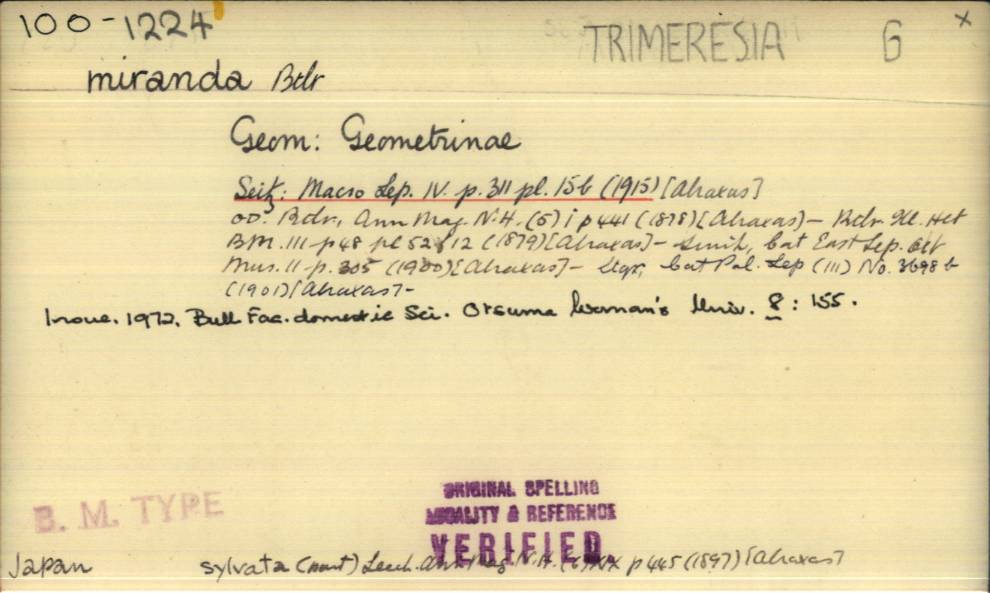 100-1224
TRIMERESIA G x
miranda Btlr
Geom: Geometrinae
Seitz: Macro Lep. IV. p. 311 pl. 15b (1915) [Abraxas]
OD: Btlr, Ann Mag. N.H. (5) i p 441 (1878) [Abraxas] - Btlr Ill. Het
BM. III p 48 pl 52 f 12 (1879) [Abraxas] - Swinh, Cat East Lep. Het
Mus. II p. 305 (1900) [Abraxas] - Stgr, Cat Pal. Lep (III) No. 3698 b
(1901) [Abraxas] -
Inoue. 1972. Bull Fac. domestic Sci. Otsuma Woman's Univ. 8: 155.
B. M. TYPE
ORIGINAL SPELLING
LOCALITY & REFERENCE
VERIFIED.
Japan sylvata (nont) Leech. Ann Mag. N.H. (6) XIX p 445 (1897) [Abraxas]